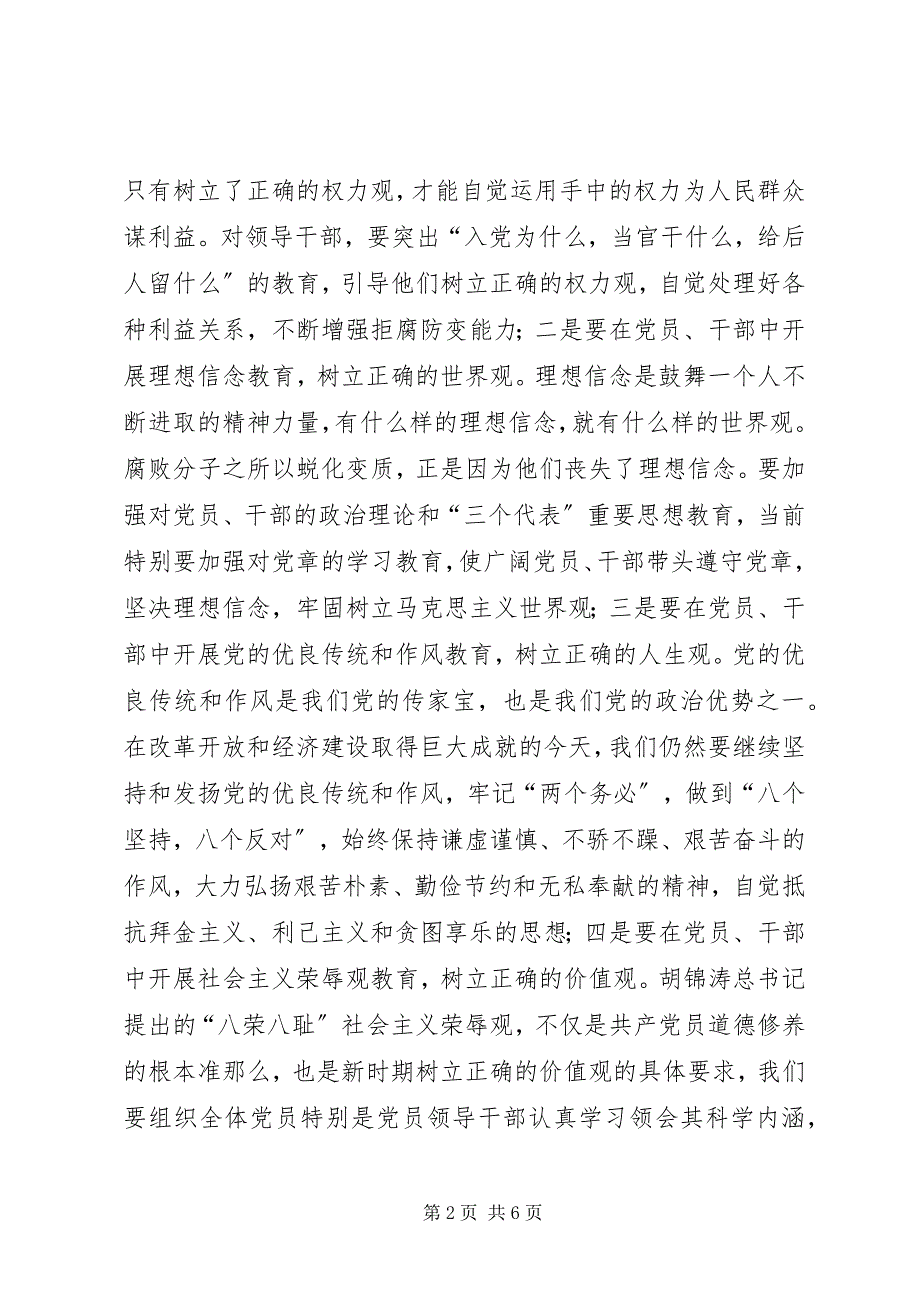 只有树立了正确的权力观，才能自觉运用手中的权力为人民群众
谋利益。对领导干部，要突出“入党为什么，当官干什么，给后
人留什么〞的教育，引导他们树立正确的权力观，自觉处理好各
种利益关系，不断增强拒腐防变能力；二是要在党员、干部中开
展理想信念教育，树立正确的世界观。理想信念是鼓舞一个人不
断进取的精神力量，有什么样的理想信念，就有什么样的世界观。
腐败分子之所以蜕化变质，正是因为他们丧失了理想信念。要加
强对党员、干部的政治理论和“三个代表〞重要思想教育，当前
特别要加强对党章的学习教育，使广阔党员、干部带头遵守党章，
坚决理想信念，牢固树立马克思主义世界观；三是要在党员、干
部中开展党的优良传统和作风教育，树立正确的人生观。党的优
良传统和作风是我们党的传家宝，也是我们党的政治优势之一。
在改革开放和经济建设取得巨大成就的今天，我们仍然要继续坚
持和发扬党的优良传统和作风，牢记“两个务必〞，做到“八个
坚持，八个反对〞，始终保持谦虚谨慎、不骄不躁、艰苦奋斗的
作风，大力弘扬艰苦朴素、勤俭节约和无私奉献的精神，自觉抵
抗拜金主义、利己主义和贪图享乐的思想；四是要在党员、干部
中开展社会主义荣辱观教育，树立正确的价值观。胡锦涛总书记
提出的“八荣八耻〞社会主义荣辱观，不仅是共产党员道德修养
的根本准那么，也是新时期树立正确的价值观的具体要求，我们
要组织全体党员特别是党员领导干部认真学习领会其科学内涵，
第 2 页 共 6 页